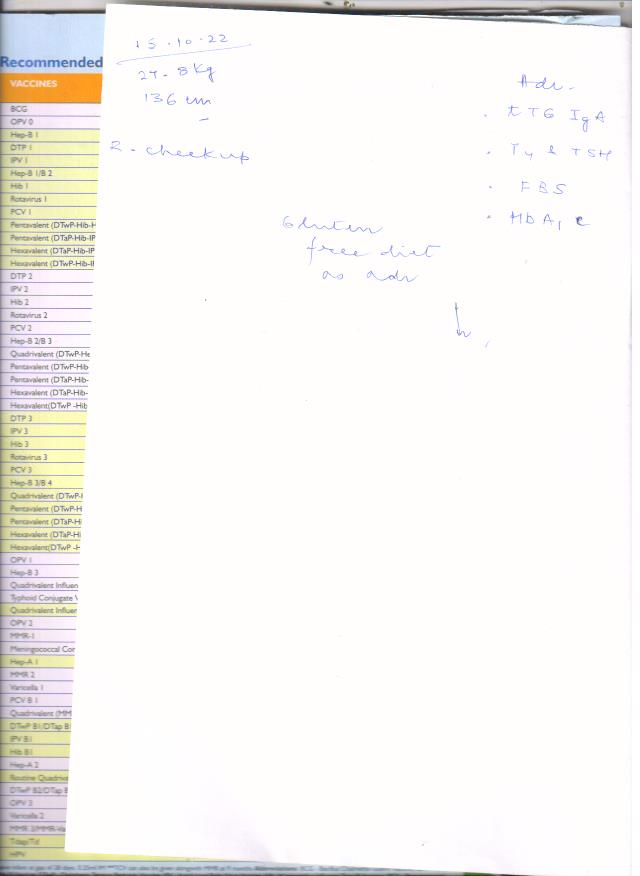 15.10.22
27.8kg
136 cm
2 - checkup
Adv -
. tTG IgA
. T4 & TSH
. FBS
. HbA1c
Gluten
free diet
as adv
Recommended
VACCINES
BCG
OPV 0
Hep-B 1
DTP 1
IPV 1
Hep-B 1/B 2
Hib 1
Rotavirus 1
PCV 1
Pentavalent (DTwP-Hib-H
Pentavalent (DTaP-Hib-IP
Hexavalent (DTaP-Hib-IP
Hexavalent (DTwP-Hib-IP
DTP 2
IPV 2
Hib 2
Rotavirus 2
PCV 2
Hep-B 2/B 3
Quadrivalent (DTwP-He
Pentavalent (DTwP-Hib
Pentavalent (DTaP-Hib-
Hexavalent (DTaP-Hib-
Hexavalent(DTwP -Hib
DTP 3
IPV 3
Hib 3
Rotavirus 3
PCV 3
Hep-B 3/B 4
Quadrivalent (DTwP-
Pentavalent (DTwP-H
Pentavalent (DTaP-Hi
Hexavalent (DTaP-Hi
Hexavalent(DTwP -H
OPV 1
Hep-B 3
Quadrivalent Influen
Typhoid Conjugate V
Quadrivalent Influer
OPV 2
MMR-1
Meningococcal Cor
Hep-A 1
MMR 2
Varicella 1
PCV B 1
Quadrivalent (MM
DTwP B1/DTap B1
IPV B1
Hib B1
Hep-A 2
Routine Quadriva
DTwP B2/DTap B
OPV 3
Varicella 2
MMR 3/MMR-Va
Tdap/Td
HPV